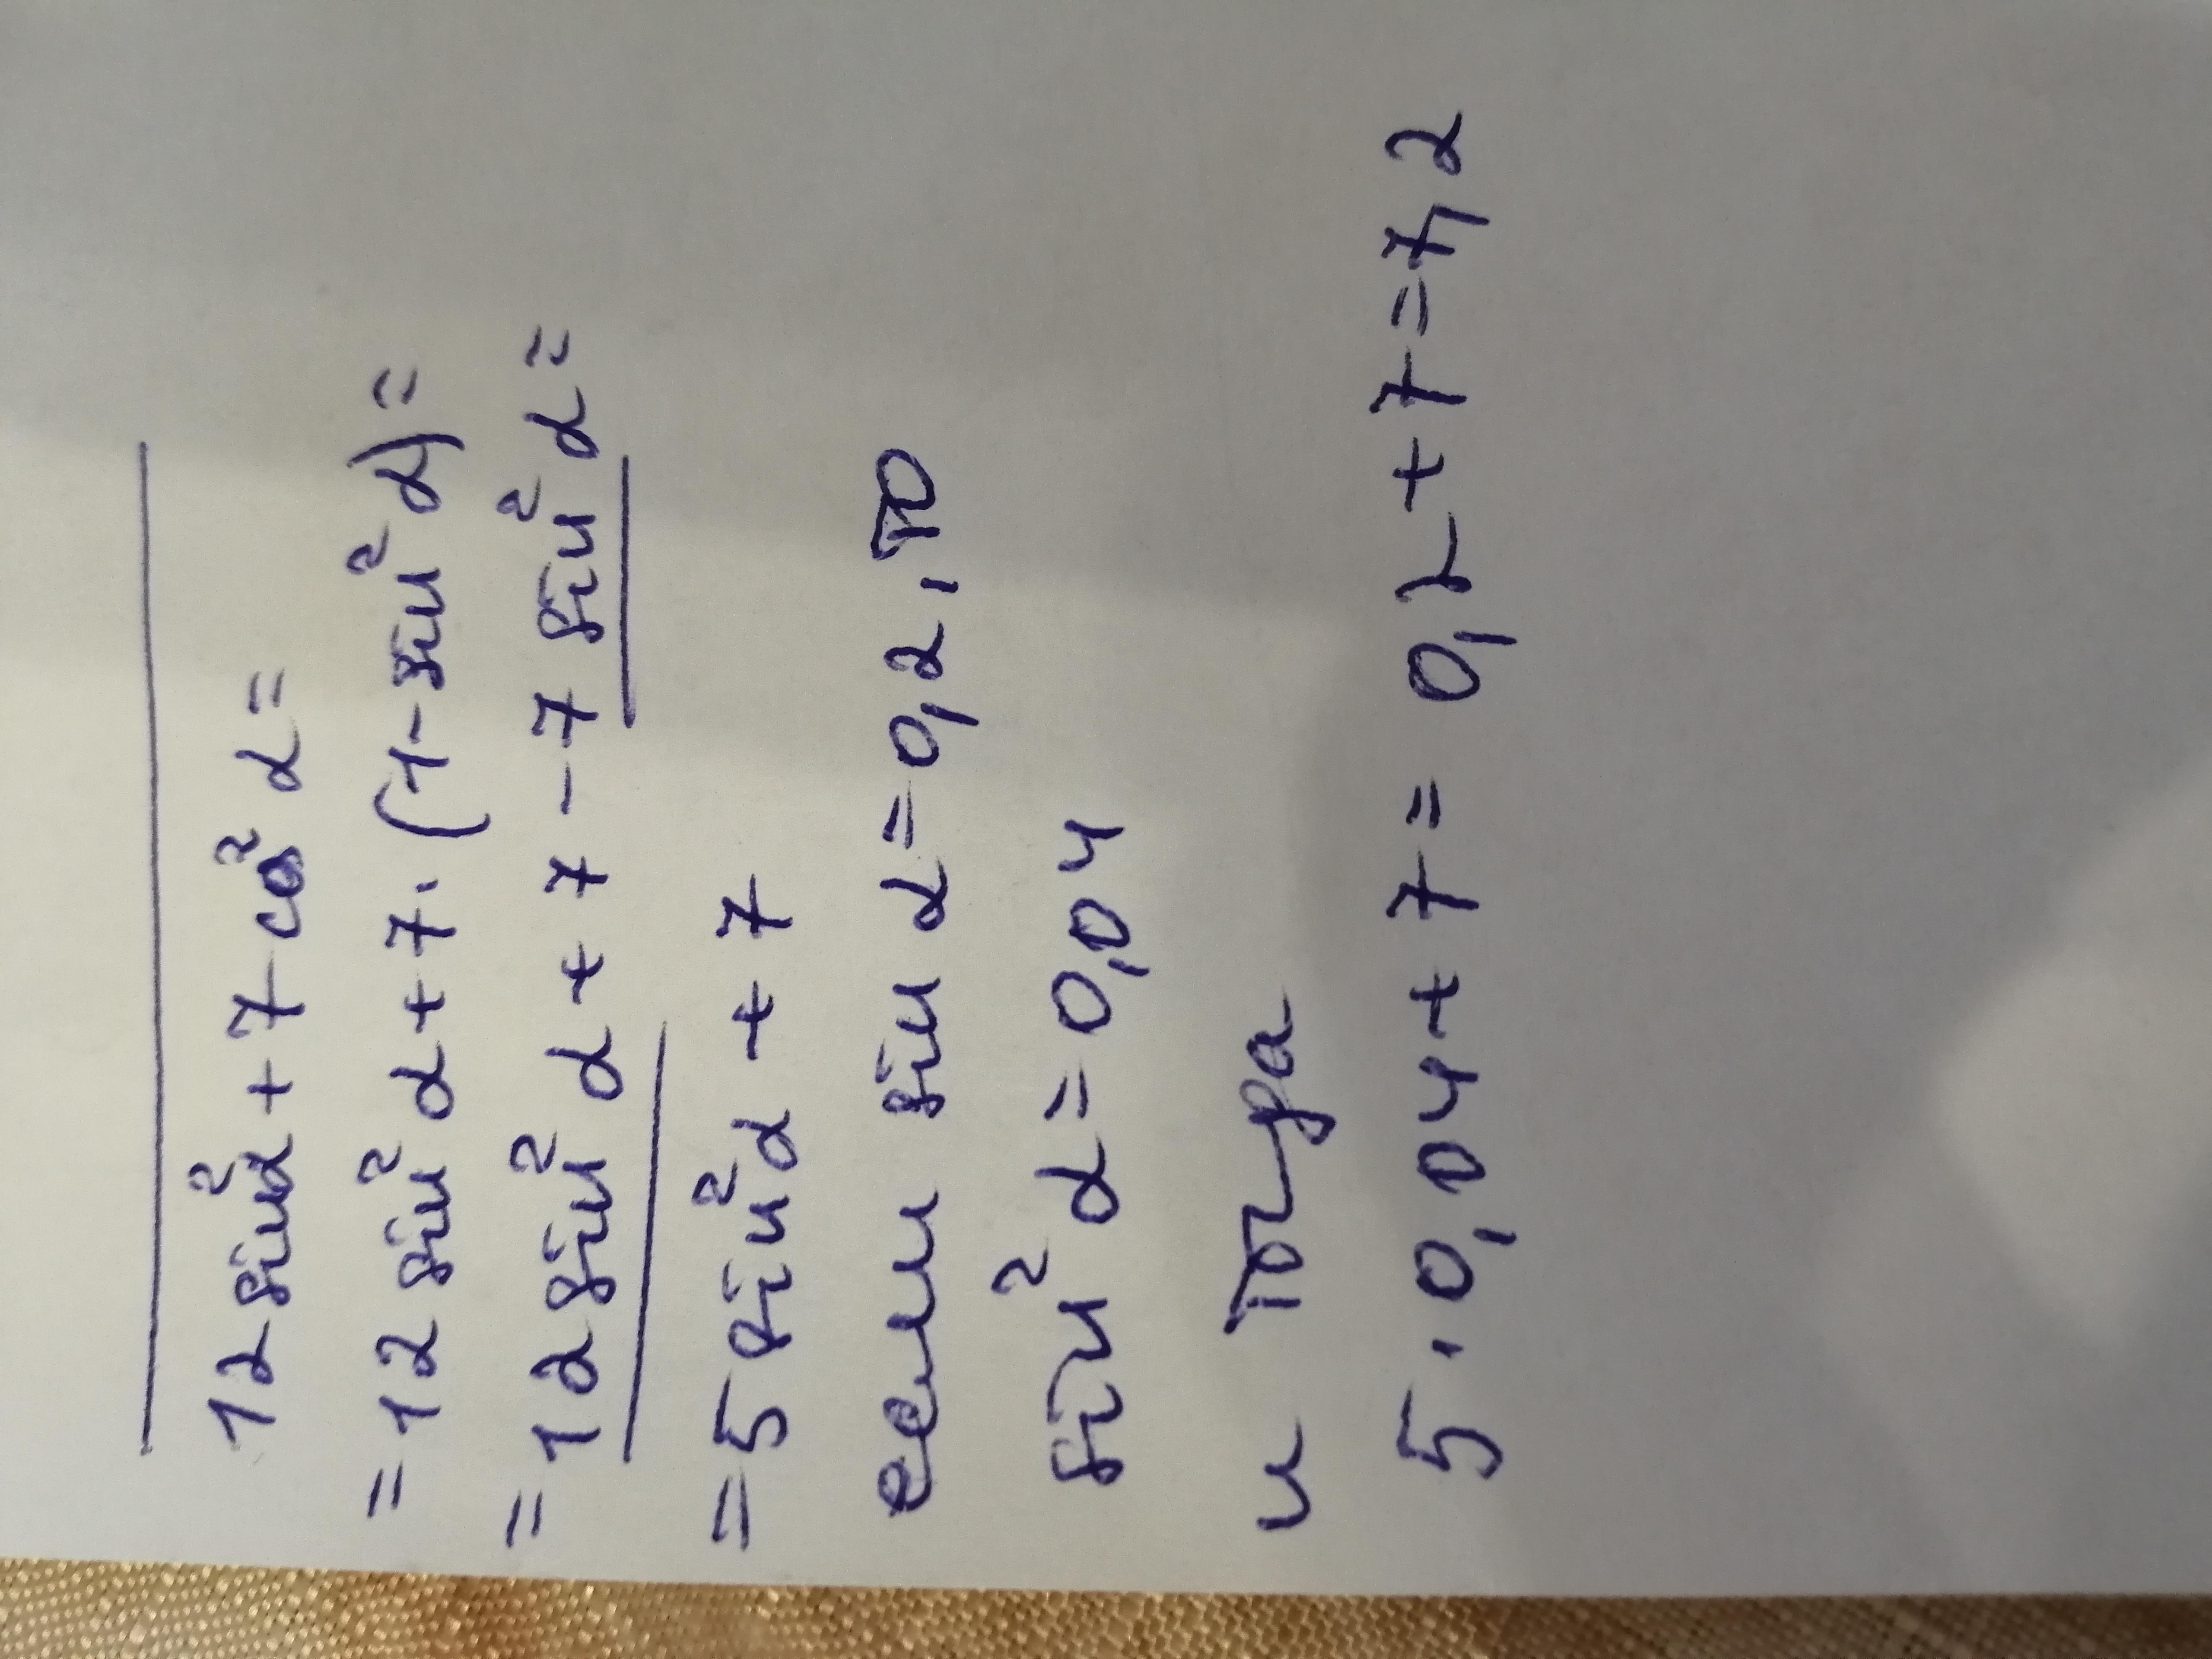 12 sin²α + 7 cos² α =
= 12 sin² α + 7 · (1 - sin² α) =
= 12 sin² α + 7 - 7 sin² α =
= 5 sin² α + 7
если sin α = 0,2, то
sin² α = 0,04
и тогда
5 · 0,04 + 7 = 0,2 + 7 = 7,2